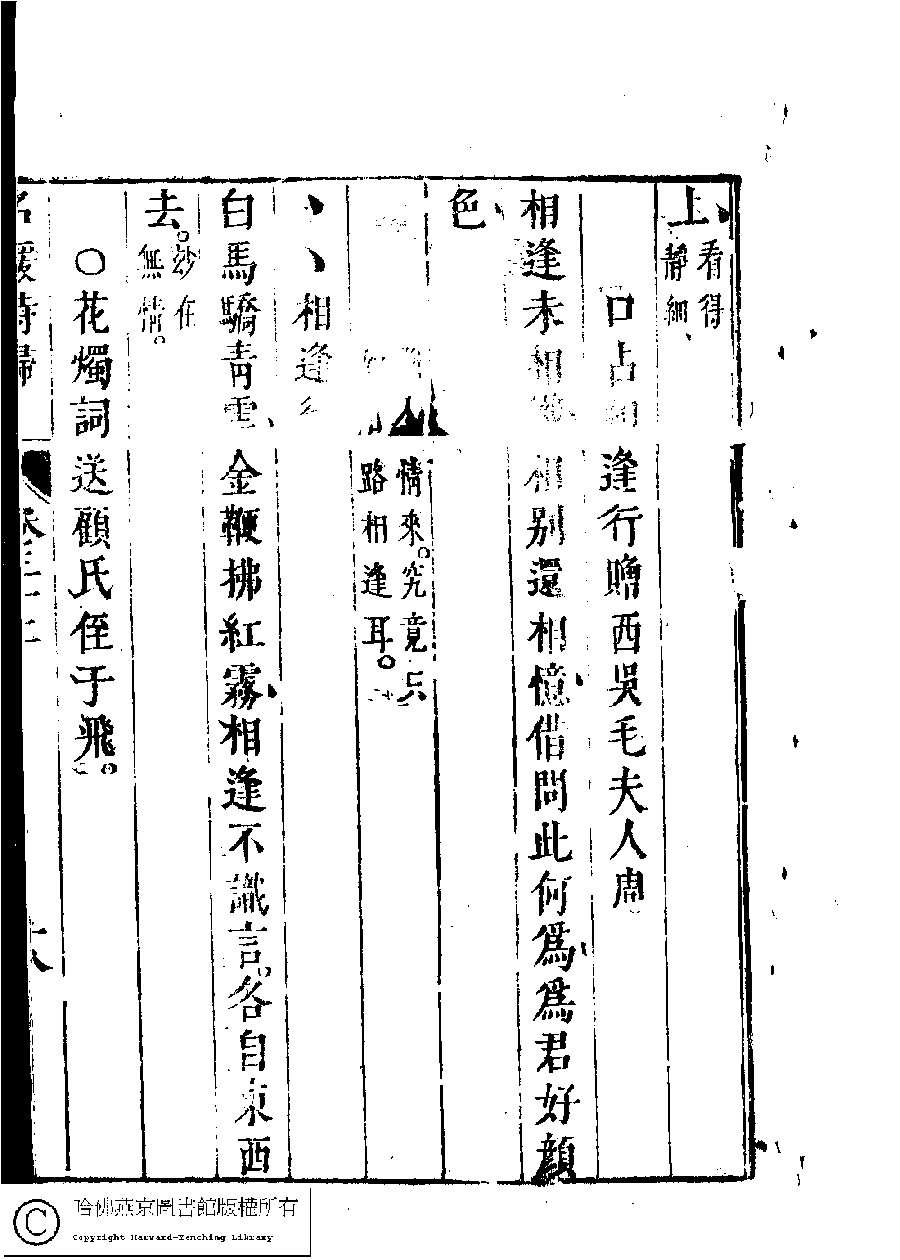 上看得靜細
口占相逢行贈西吳毛夫人周
相逢未相 相別還相憶借問此何爲爲君好顏
色
情來究竟只路相逢耳
相逢
白馬驕青雲金鞭拂紅霧相逢不識言各自東西
去妙在無情
○花燭詞送顧氏侄于飛
名媛詩歸 卷三十二 十八
哈佛燕京圖書館版權所有
Copyright Harvard-Yenching Library